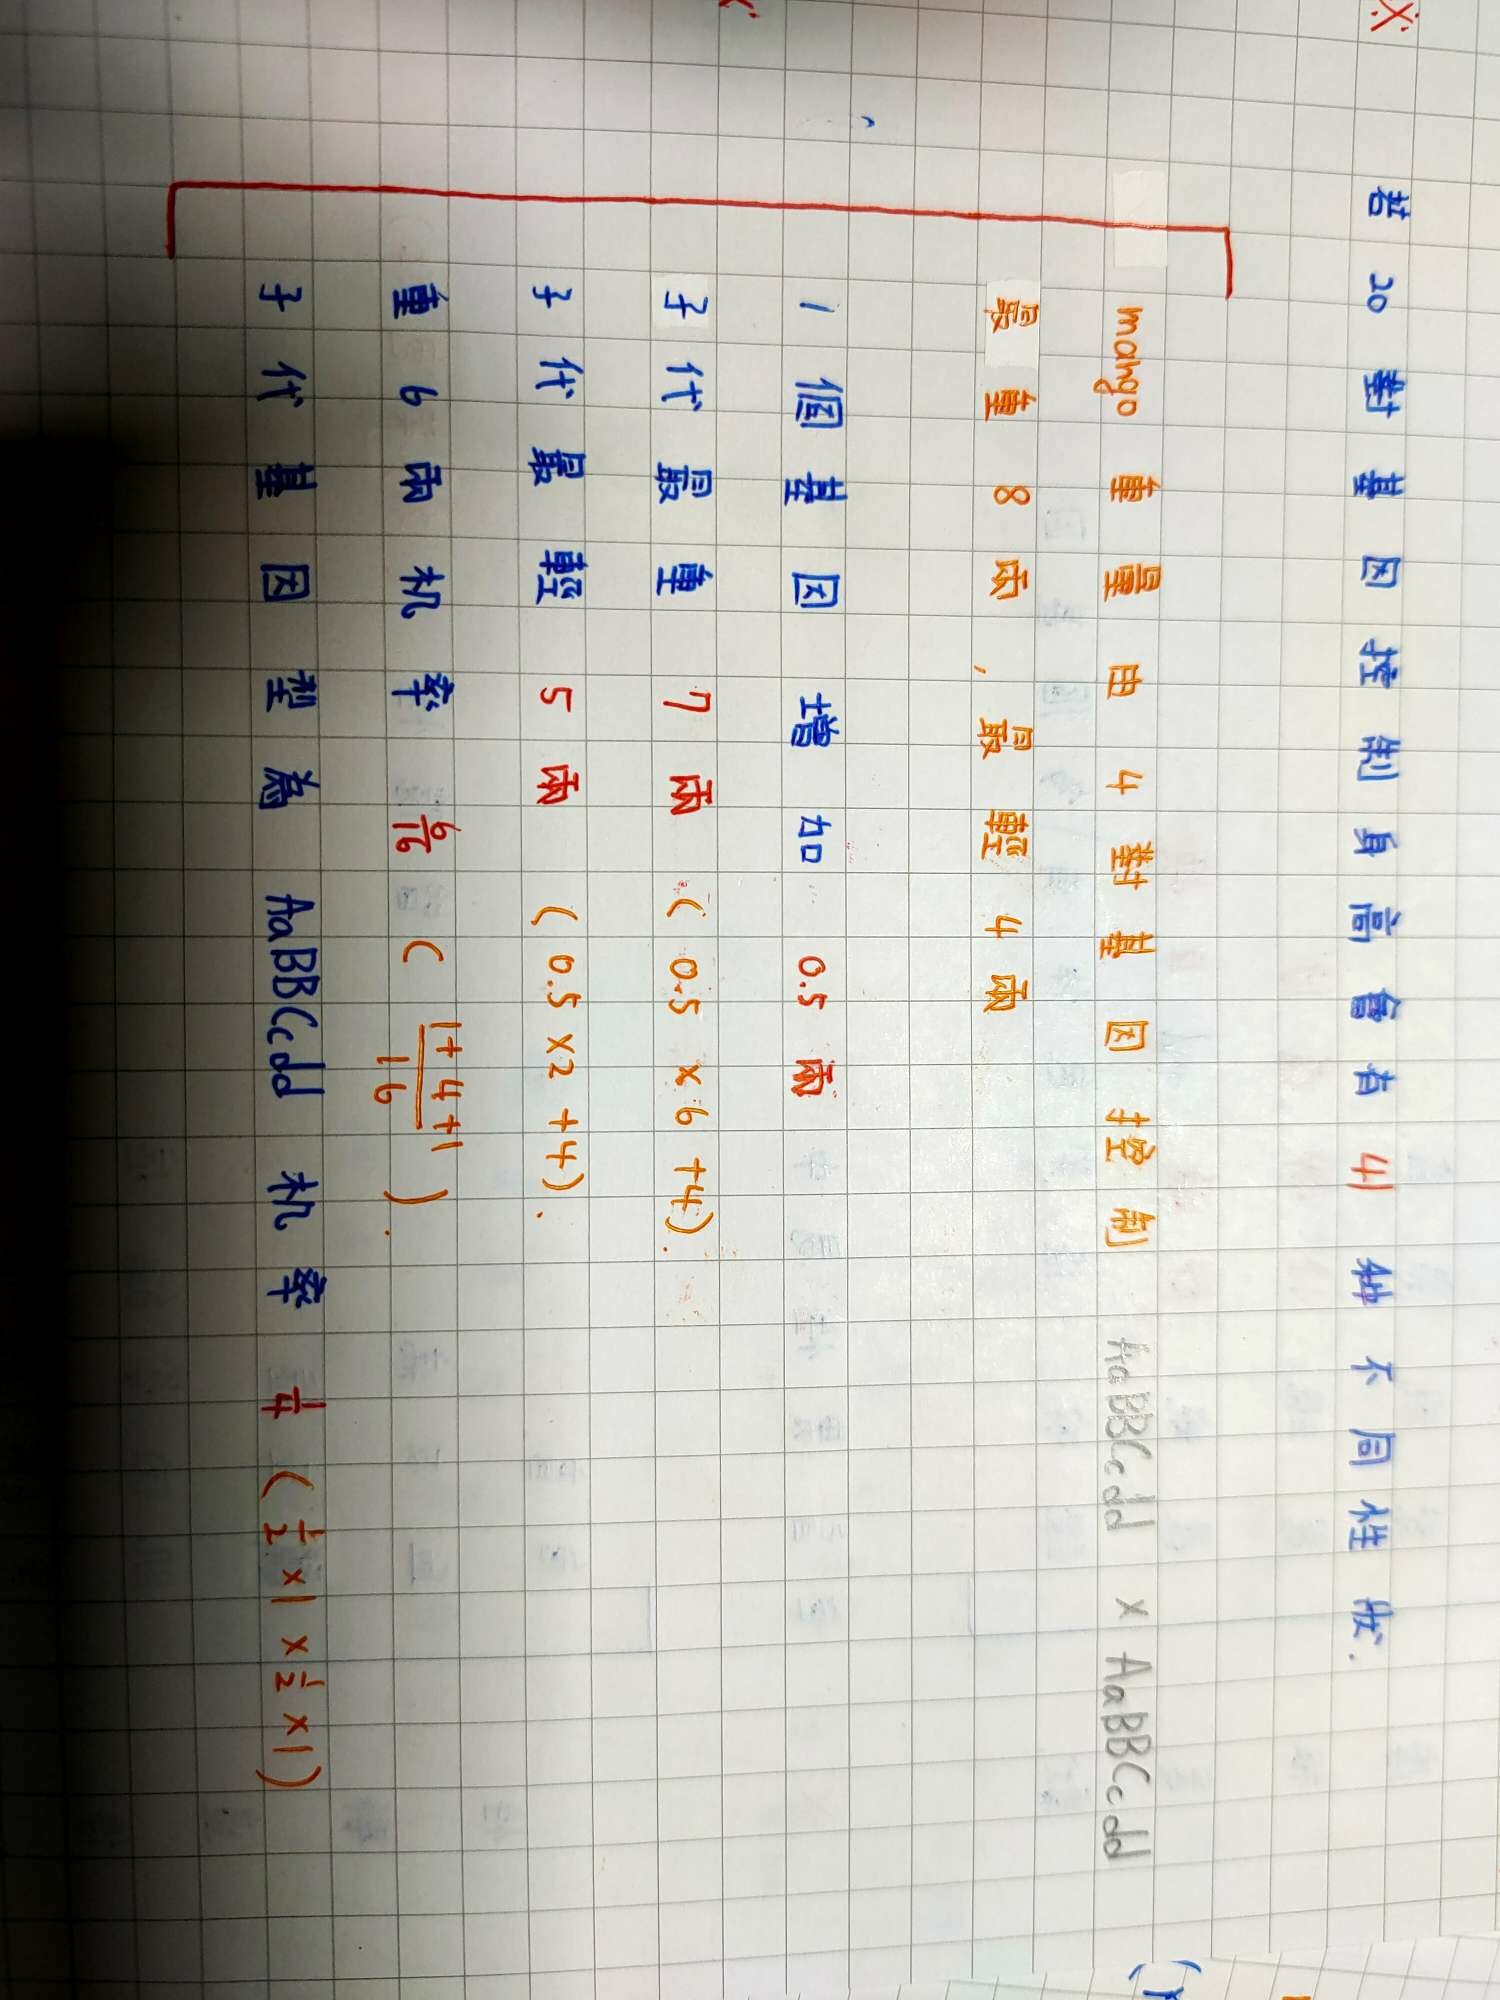 若20對基因控制身高會有41種不同性狀.
mango重量由4對基因控制 AaBBCcdd × AaBBCcdd
最重8兩,最輕4兩
1個基因增加0.5兩
子代最重7兩(0.5×6+4).
子代最輕5兩(0.5×2+4).
重6兩机率6/16(1+4+1/16).
子代基因型為AaBBCcdd机率1/4(1/2×1×1/2×1)